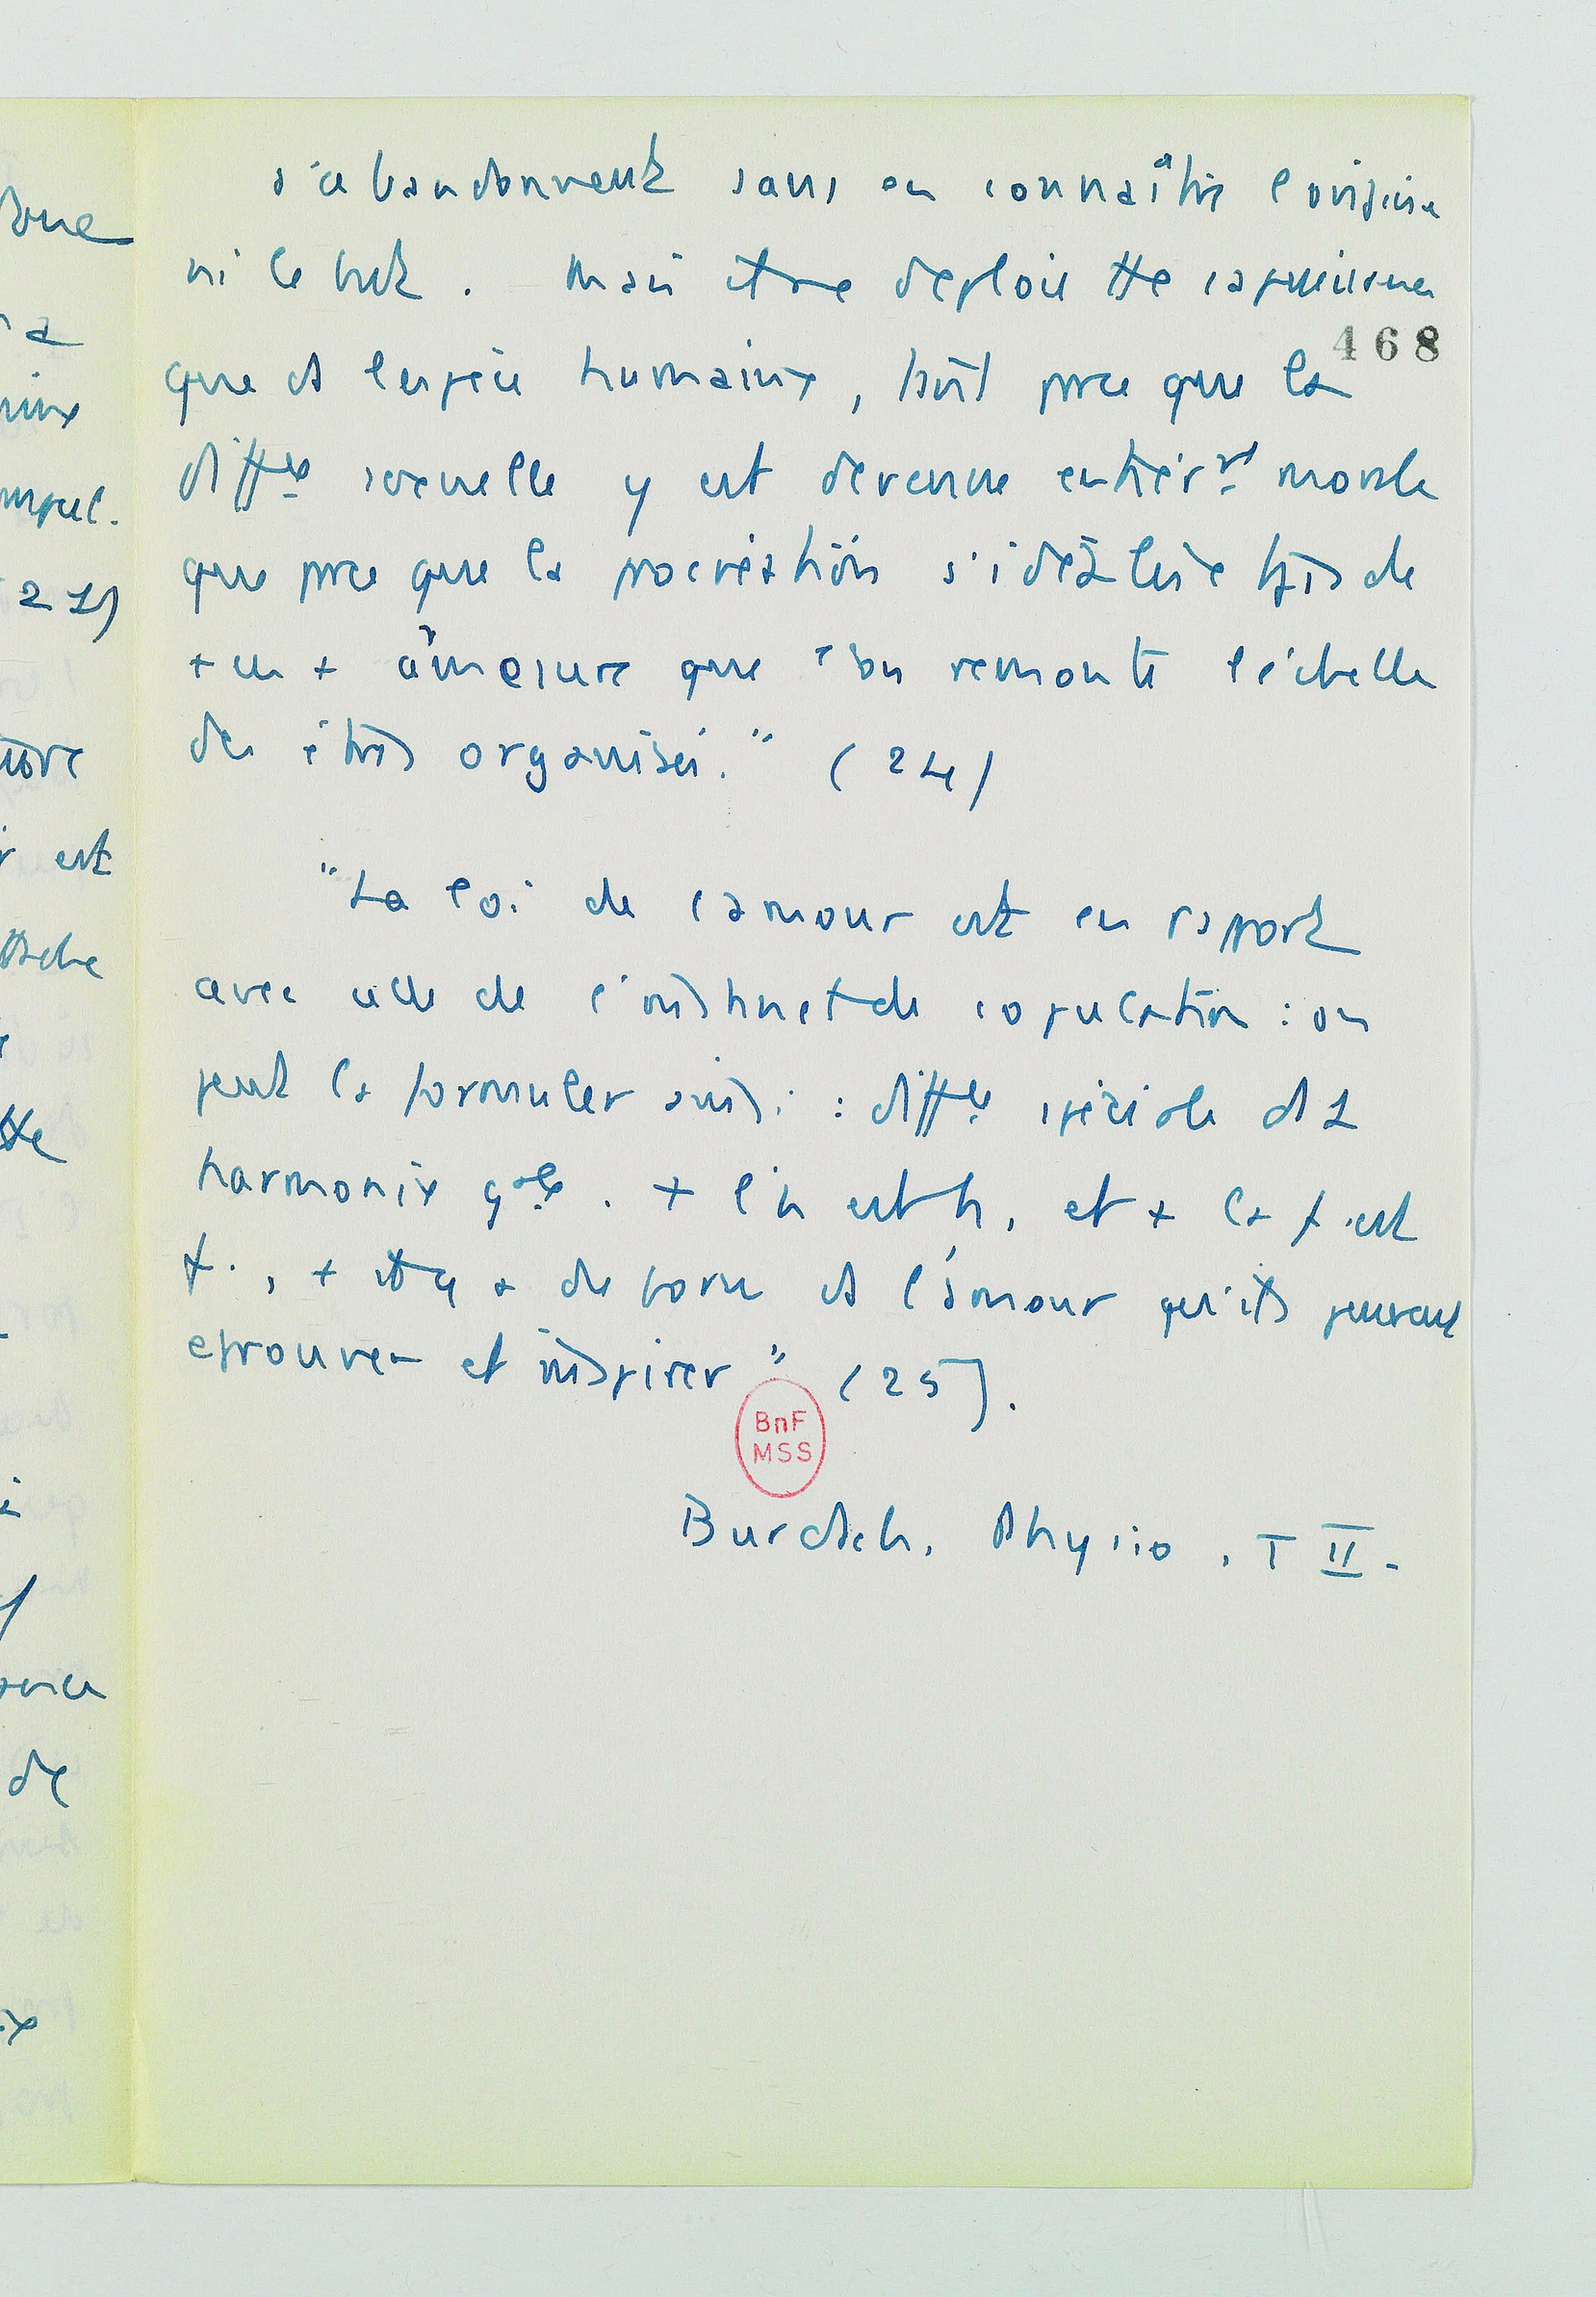 s'abandonnent sans en connaître l'origine
ni le but. Mais il ne déploie tte sa puissance
468
que ds l'espèce humaine, tant pce que la
diffce sexuelle y est devenue entièrmt morale
que pce que la procréation s'idéalise tjrs de
+ en + à mesure que l'on remonte l'échelle
des êtres organisés." (24)
"La loi de l'amour est en rapport
avec celle de l'instinct de copulation : on
peut la formuler ainsi : diffce spéciale ds 1
harmonie gale. + l'h est h, et + la f. est
f., + il y a de force ds l'amour qu'ils peuvent
éprouver et inspirer" (25).
BnF
MSS
Burdach, Physio, T II.